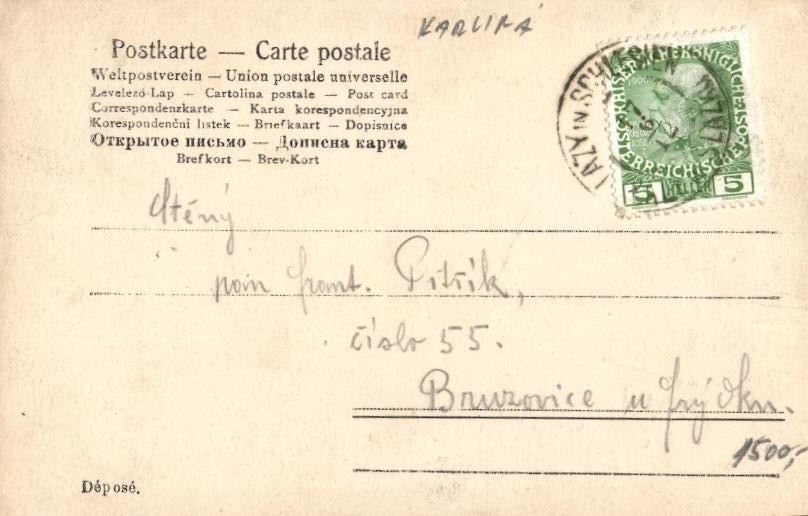 KARLIRÁ
Postkarte — Carte postale
Weltpostverein — Union postale universelle
Levelező-Lap — Cartolina postale — Post card
Correspondenzkarte — Karta korespondencyjna
Korespondenční listek — Briefkaart — Dopisnice
Открытое письмо — Дописна карта
Brefkort — Brev-Kort
LAZY IN SCHLESIEN
5 HELLER 5
Ctěný
pan frant. Pitřík,
číslo 55.
Bruzovice u Frýdku.
1500,-
Déposé.